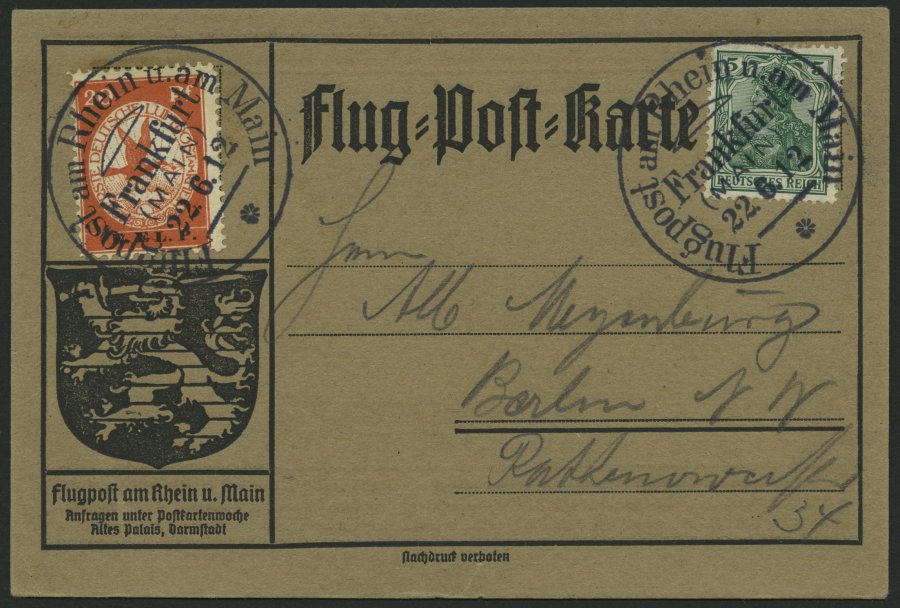 Flug-Post-Karte
Flugpost am Rhein u. am Main
Frankfurt
(MAIN)
22.6.12
E.L.P.
Flugpost am Rhein u. am Main
Frankfurt
(MAIN)
22.6.12
5 5
DEUTSCHES REICH
Herrn
Alb Meyenburg
Berlin N W
Rathenowerstr
34
Flugpost am Rhein u. Main
Anfragen unter Postkartenwoche
Altes Palais, Darmstadt
Nachdruck verboten